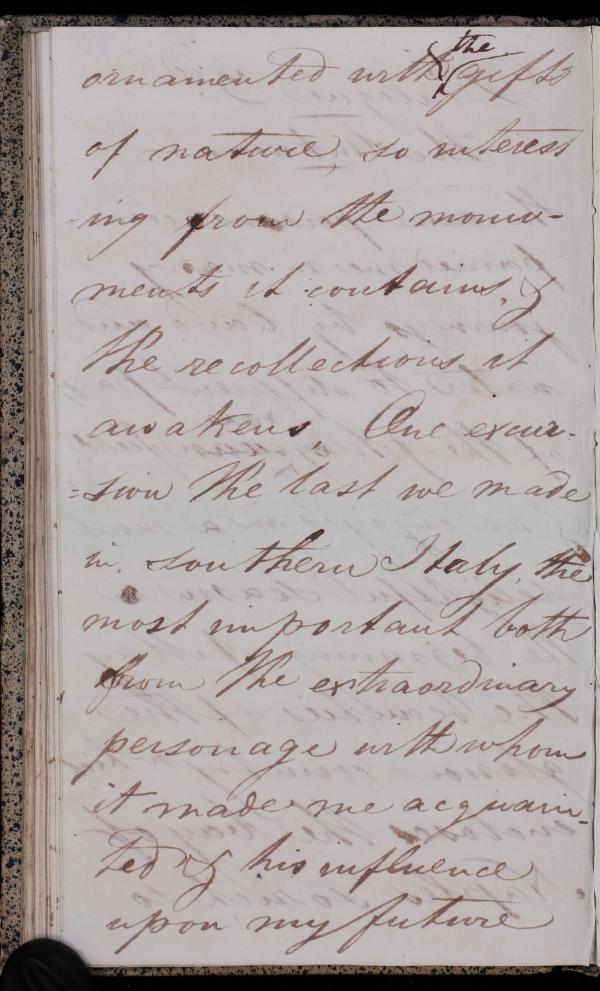 ornamented with the gifts
of nature, so interess
-ing from the monu-
ments it contains, &
the recollections it
awakens, One excur-
=sion the last we made
in southern Italy, the
most important both
from the extraordinary
personage with whom
it made me acquain-
ted & his influence
upon my future